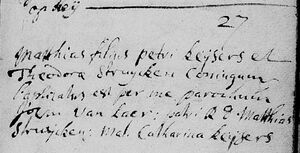 27
Matthias filius petri keijsers et
Theodora Struijcken Coniugum
baptizatus est per me
Joem van Laer: patri R D Matthias
Struijcken: mat. Catharina keijsers